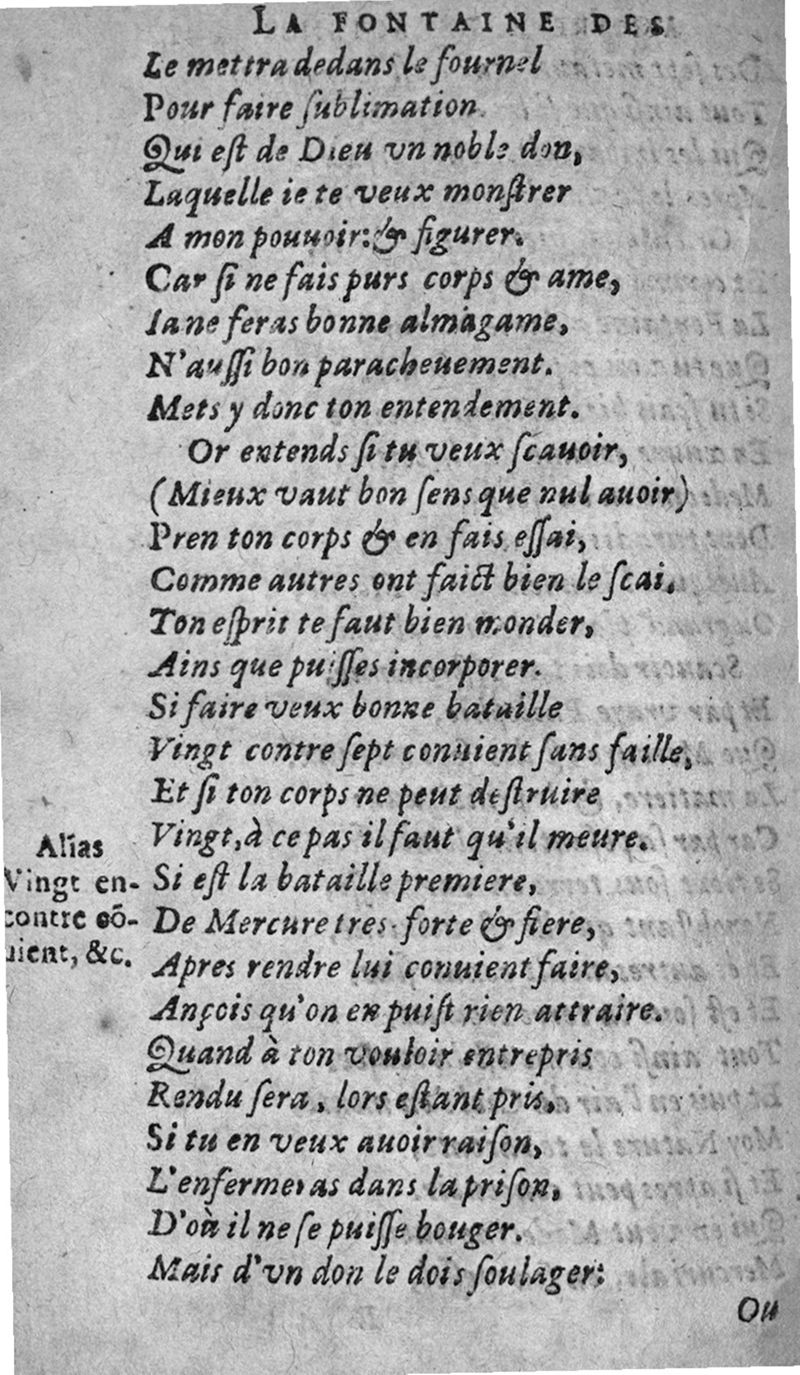 LA FONTAINE DES
Le mettra dedans le fournel
Pour faire ſublimation
Qui eſt de Dieu vn noble don,
Laquelle ie te veux monſtrer
A mon pouuoir: & figurer.
Car ſi ne fais purs corps & ame,
Ia ne feras bonne almagame,
N'auſſi bon paracheuement.
Mets y donc ton entendement.
Or entends ſi tu veux ſcauoir,
(Mieux vaut bon ſens que nul auoir)
Pren ton corps & en fais eſſai,
Comme autres ont faict bien le ſcai.
Ton eſprit te faut bien monder,
Ains que puiſſes incorporer.
Si faire veux bonne bataille
Vingt contre ſept conuient ſans faille,
Et ſi ton corps ne peut deſtruire
Vingt, à ce pas il faut qu'il meure.
Si eſt la bataille premiere,
De Mercure tres-forte & fiere,
Apres rendre lui conuient faire,
Ançois qu'on en puiſt rien attraire.
Quand à ton vouloir entrepris
Rendu ſera, lors eſtant pris,
Si tu en veux auoir raiſon,
L'enfermeras dans la priſon,
D'où il ne ſe puiſſe bouger.
Mais d'vn don le dois ſoulager:
Ou
Alias
Vingt en-
contre cō-
uient, &c.